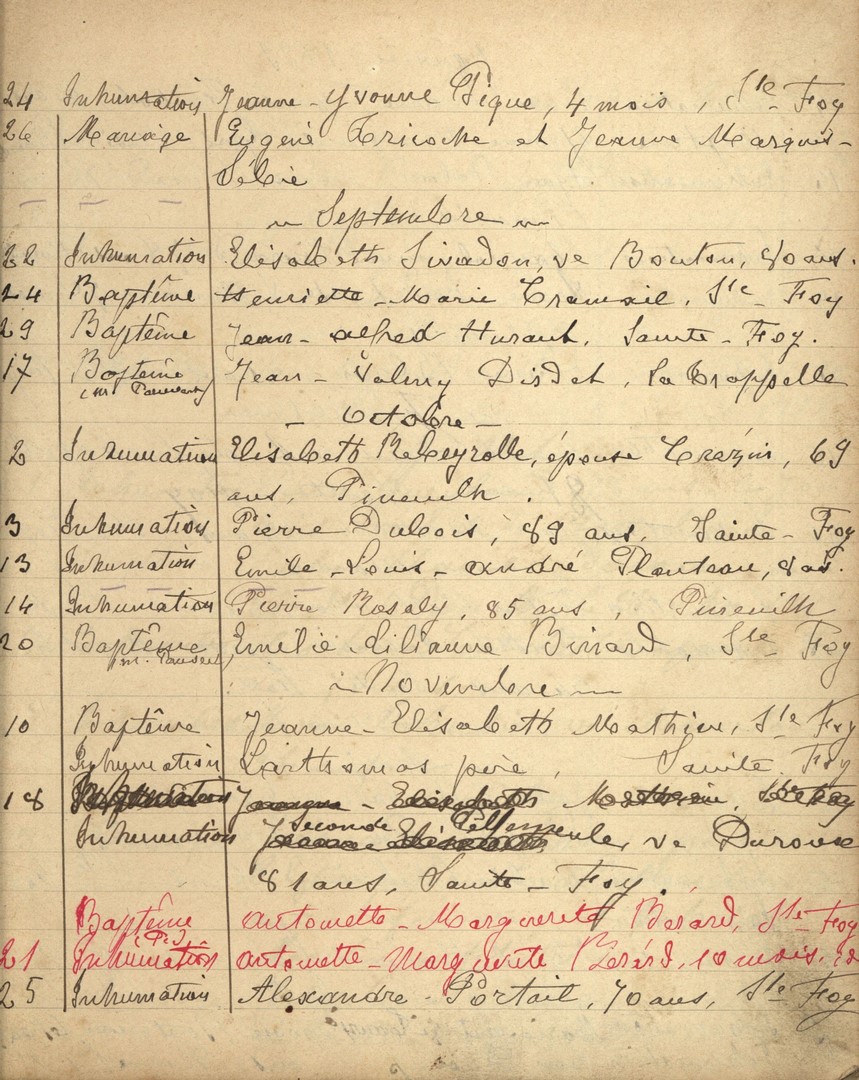 24 Inhumation Jeanne - Yvonne Pique, 4 mois, Ste Foy
26 Mariage Eugène Tricoche et Jeanne Marquis-
Sébie
Septembre
22 Inhumation Elisabeth Sivadon, ve Bouton, 80 ans.
24 Baptême Henriette - Marie Tramail, Ste Foy
29 Baptême Jean - Alfred Huraut, Sainte - Foy.
17 Baptême Jean - Valmy Disdet, La Trappelle
(M.
- Octobre -
2 Inhumation Elisabeth Rebeyrolle, épouse 69
ans, Pineuilh.
3 Inhumation Pierre Dubois, 89 ans, Sainte - Foy
13 Inhumation Emile - Louis - André Planteau, 8 ans.
14 Inhumation Pierre Rosaly, 85 ans, Pineuilh
20 Baptême Emélie - Lilianne Ste Foy
M.
- Novembre -
10 Baptême Jeanne - Elisabeth Mathieu, Ste Foy
Inhumation Larthomas père, Sainte Foy
18 Jeanne - Elisabeth Mathieu, Ste Foy
Seconde
Inhumation ve Durouse
81 ans, Sainte - Foy.
Baptême Antoinette - Marguerite Berard, Ste Foy
(P.)
21 Inhumation Antoinette - Marguerite Bérard, 10 mois.
25 Inhumation Alexandre Portail, 70 ans, Ste Foy